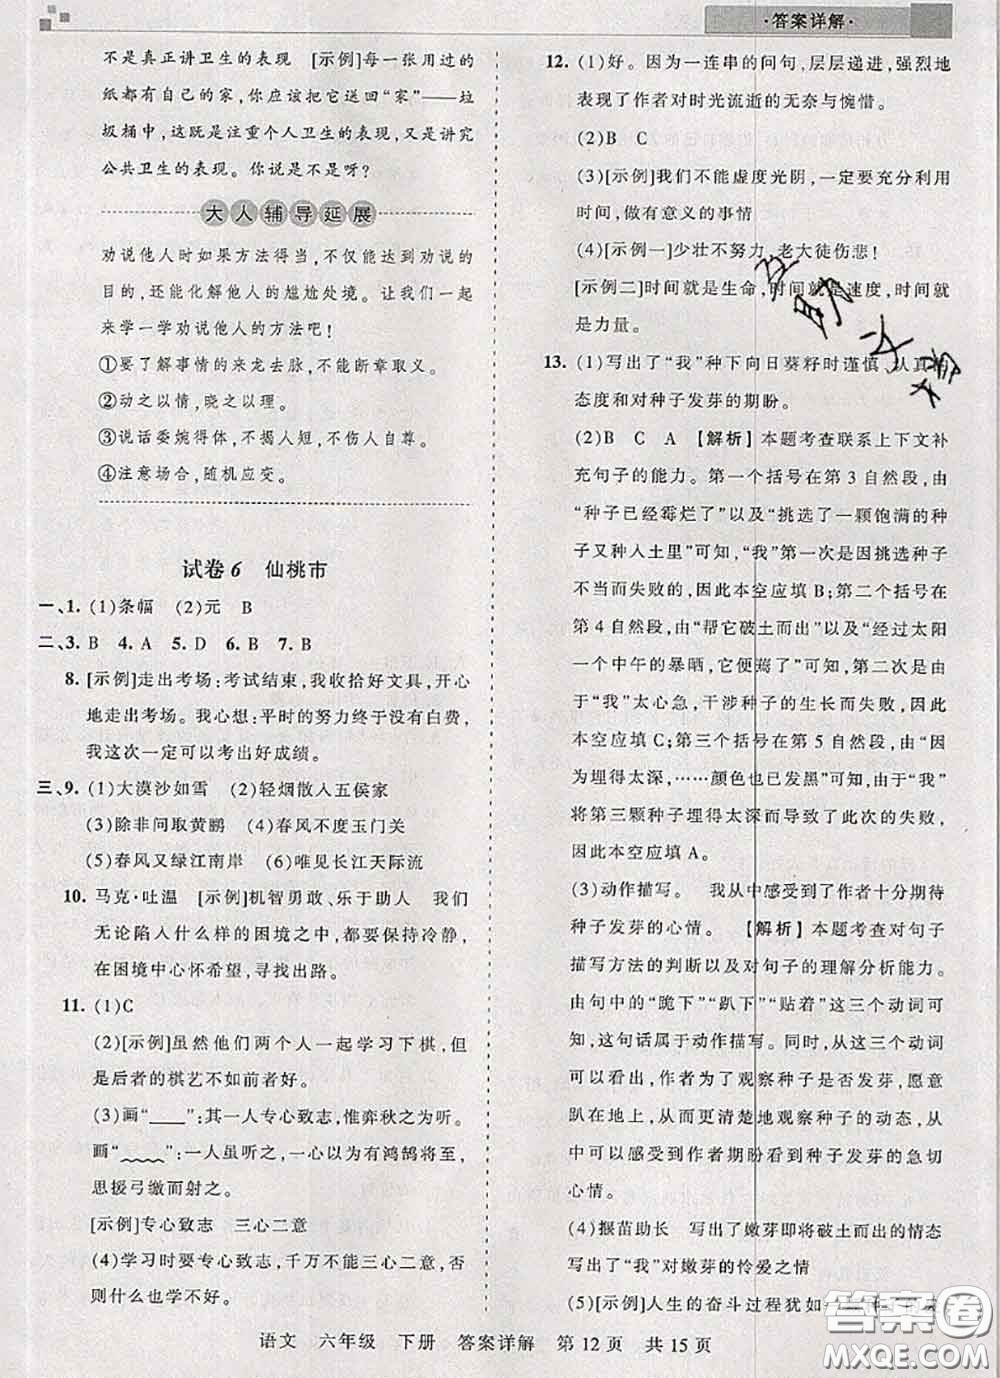 ·答案详解·
不是真正讲卫生的表现　[示例]每一张用过的
纸都有自己的家,你应该把它送回“家”——垃
圾桶中,这既是注重个人卫生的表现,又是讲究
公共卫生的表现。你说是不是呀?
大人辅导延展
劝说他人时如果方法得当,不仅能达到劝说的
目的,还能化解他人的尴尬处境。让我们一起
来学一学劝说他人的方法吧!
①要了解事情的来龙去脉,不能断章取义。
②动之以情,晓之以理。
③说话委婉得体,不揭人短,不伤人自尊。
④注意场合,随机应变。
试卷6　仙桃市
一、1. (1)条幅　(2)元　B
二、3. B　4. A　5. D　6. B　7. B
8. [示例]走出考场:考试结束,我收拾好文具,开心
地走出考场。我心想:平时的努力终于没有白费,
我这次一定可以考出好成绩。
三、9. (1)大漠沙如雪　(2)轻烟散入五侯家
(3)除非问取黄鹂　(4)春风不度玉门关
(5)春风又绿江南岸　(6)唯见长江天际流
10. 马克·吐温　[示例]机智勇敢、乐于助人　我们
无论陷入什么样的困境之中,都要保持冷静,
在困境中心怀希望,寻找出路。
11. (1)C
(2)[示例]虽然他们两个人一起学习下棋,但
是后者的棋艺不如前者好。
(3)画“____”:其一人专心致志,惟弈秋之为听。
画“﹏﹏”:一人虽听之,一心以为有鸿鹄将至,
思援弓缴而射之。
[示例]专心致志　三心二意
(4)学习时要专心致志,千万不能三心二意,否
则什么也学不好。
12. (1)好。因为一连串的问句,层层递进,强烈地
表现了作者对时光流逝的无奈与惋惜。
(2)B　C
(3)[示例]我们不能虚度光阴,一定要充分利用
时间,做有意义的事情
(4)[示例一]少壮不努力,老大徒伤悲!
[示例二]时间就是生命,时间就是速度,时间就
是力量。
13. (1)写出了“我”种下向日葵籽时谨慎、认真的
态度和对种子发芽的期盼。
(2)B　C　A　[解析]本题考查联系上下文补
充句子的能力。第一个括号在第3自然段,由
“种子已经霉烂了”以及“挑选了一颗饱满的种
子又种入土里”可知,“我”第一次是因挑选种子
不当而失败的,因此本空应填B;第二个括号在
第4自然段,由“帮它破土而出”以及“经过太阳
一个中午的暴晒,它便蔫了”可知,第二次是因
为“我”太心急,干涉种子的生长而失败,因此
本空应填C;第三个括号在第5自然段,由“因
为埋得太深,……颜色也已发黑”可知,“我”
将第三颗种子埋得太深导致了此次的失败,
因此本空应填A。
(3)动作描写。　我从中感受到了作者十分期待
种子发芽的心情。　[解析]本题考查对句子
描写方法的判断以及对句子的理解分析能力。
由句中的“跪下”“趴下”“贴着”这三个动词可
知,这句话属于动作描写。同时,从这三个动词
可以看出,作者为了观察种子是否发芽,愿意
趴在地上,从而更清楚地观察种子的动态,从
中可以感受到作者期盼种子发芽的急切
心情。
(4)揠苗助长　写出了嫩芽即将破土而出的情态
写出了“我”对嫩芽的怜爱之情
(5)[示例]人生的奋斗过程犹如
语文　六年级　下册　答案详解　第12页　共15页
答案圈
MXQE.COM